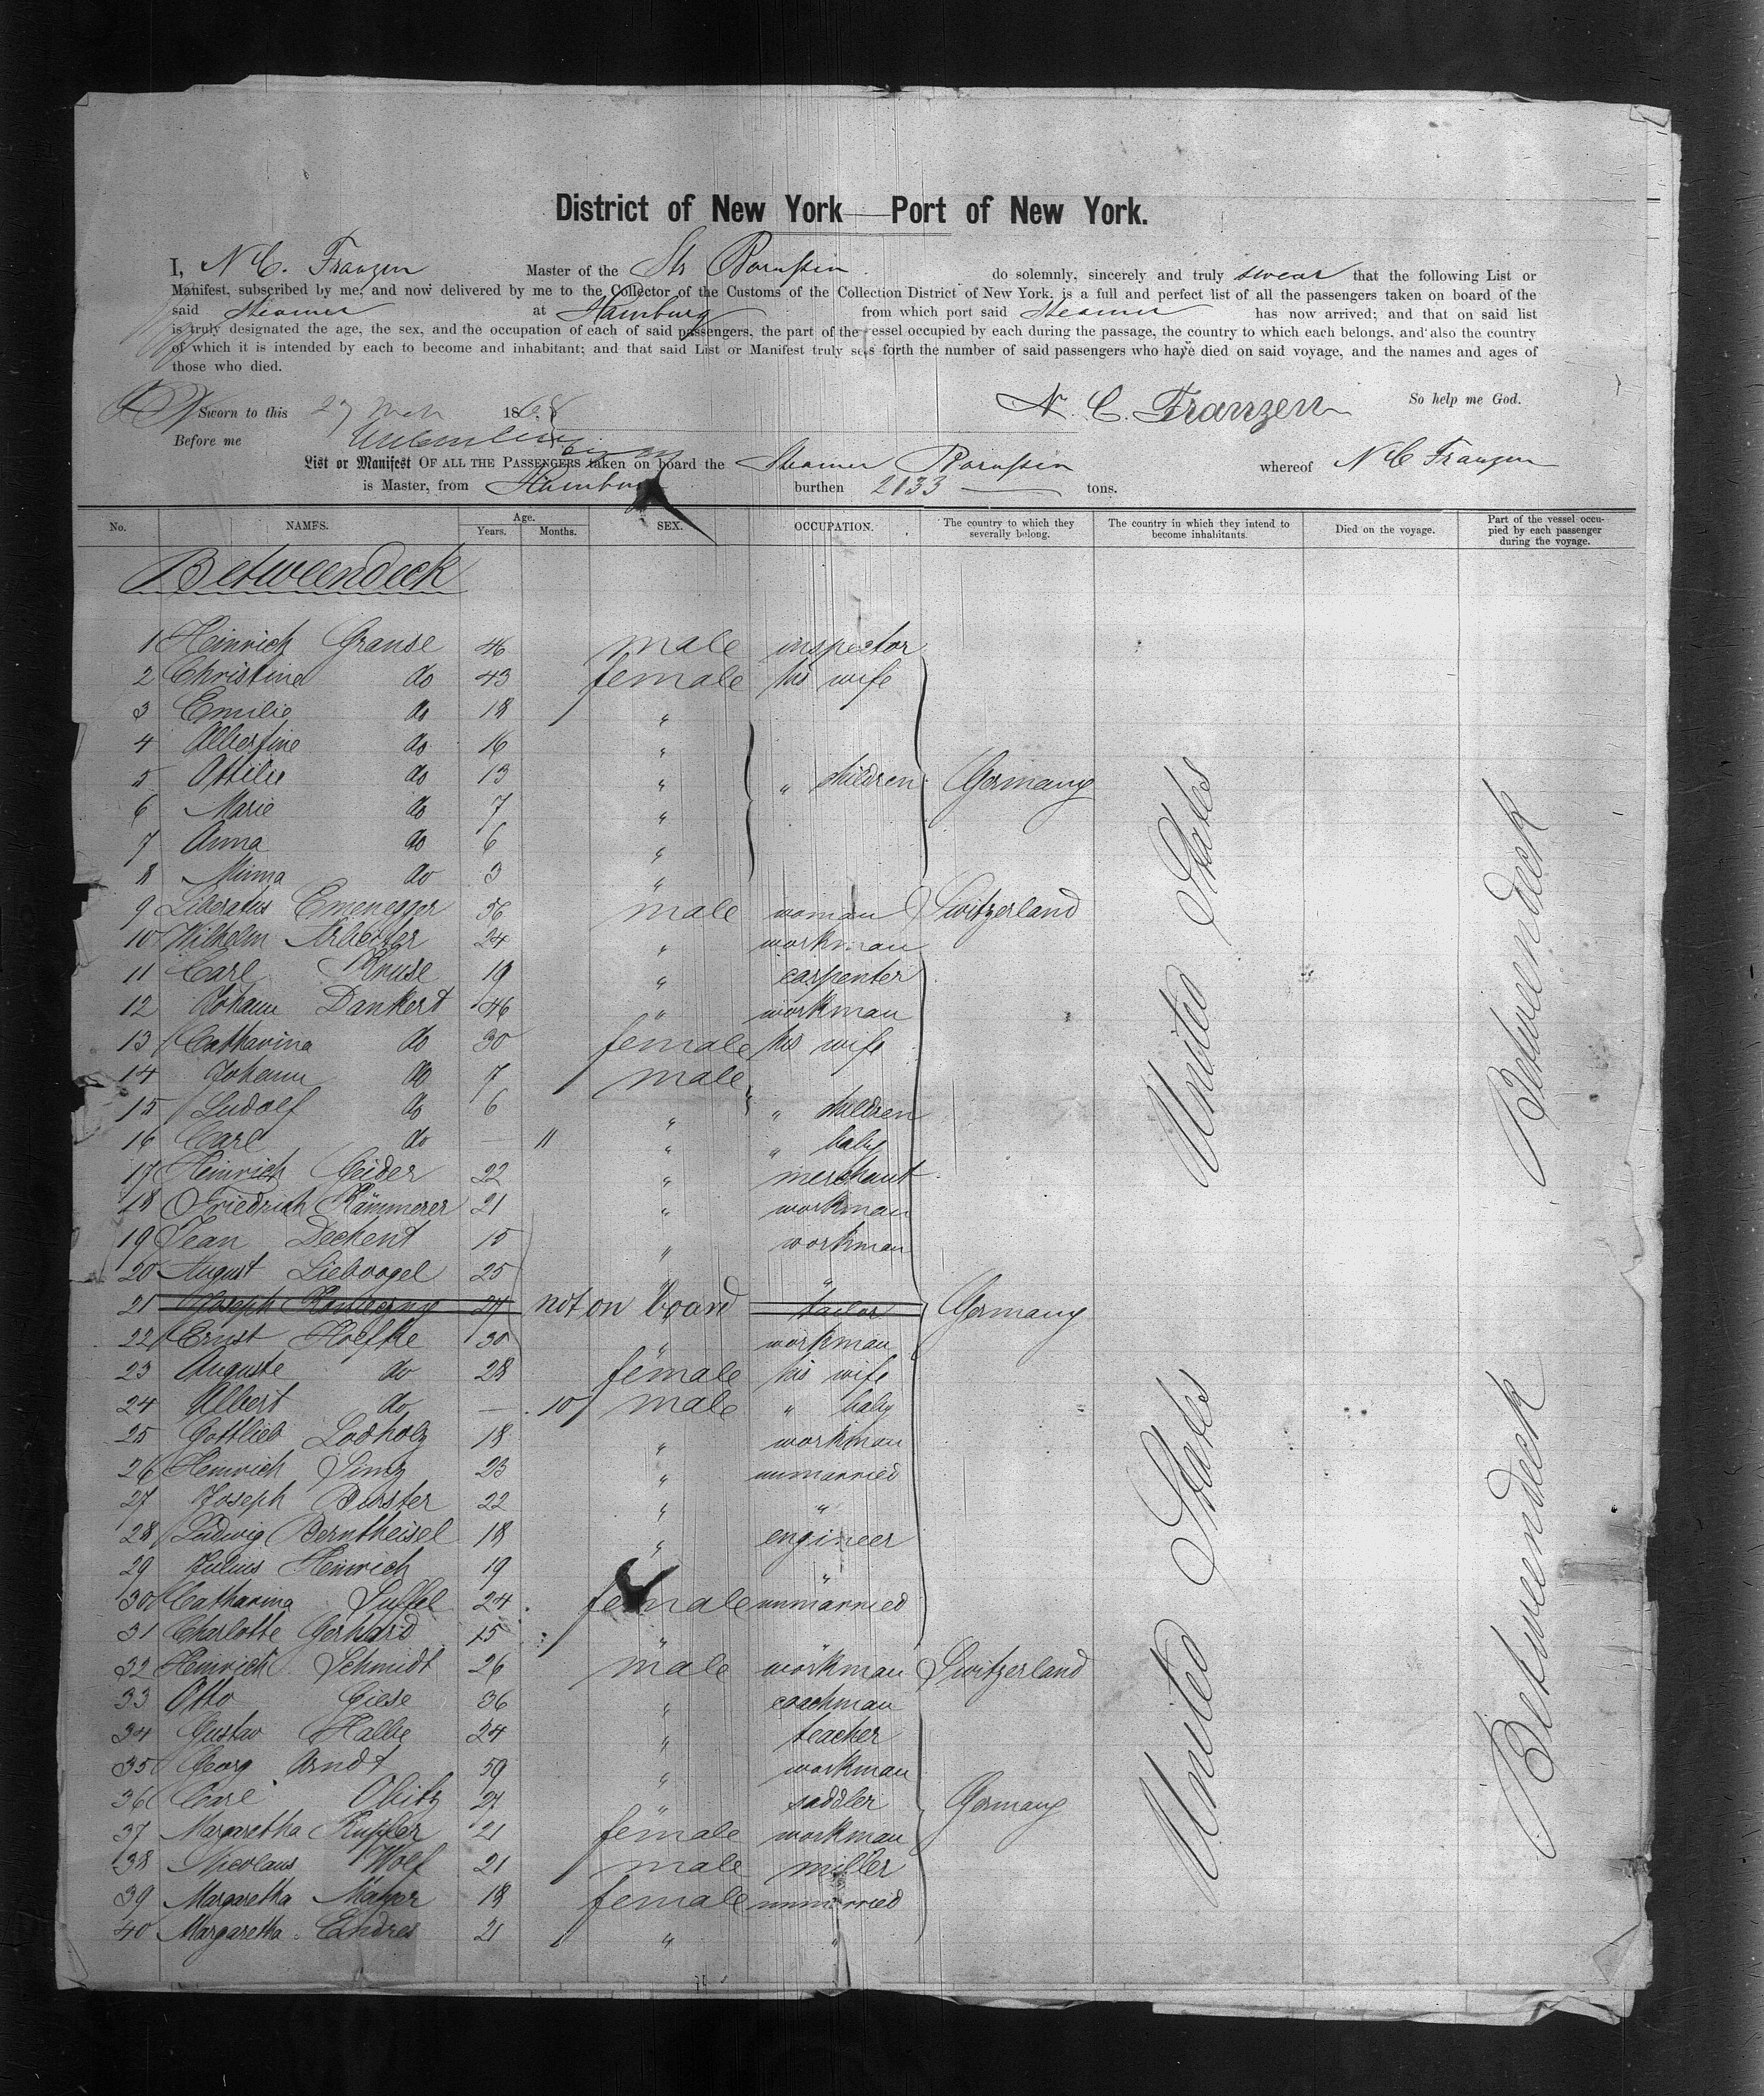 District of New York—Port of New York.
I, N C. Franzen Master of the Str Borussia do solemnly, sincerely and truly swear that the following List or
Manifest, subscribed by me, and now delivered by me to the Collector of the Customs of the Collection District of New York, is a full and perfect list of all the passengers taken on board of the
said Steamer at Hamburg from which port said Steamer has now arrived; and that on said list
is truly designated the age, the sex, and the occupation of each of said passengers, the part of the vessel occupied by each during the passage, the country to which each belongs, and also the country
of which it is intended by each to become and inhabitant; and that said List or Manifest truly sets forth the number of said passengers who have died on said voyage, and the names and ages of
those who died.
So help me God.
Sworn to this 27 Mch 1868 N. C. Franzen
Before me
List or Manifest OF ALL THE PASSENGERS taken on board the Steamer Borussia whereof N C Franzen
is Master, from Hamburg burthen 2133 tons.
No. NAMES. Age. Years. Months. SEX. OCCUPATION. The country to which they severally belong. The country in which they intend to become inhabitants. Died on the voyage. Part of the vessel occupied by each passenger during the voyage.
Betweendeck
1 Heinrich Granse 46 male inspector
2 Christine do 43 female his wife
3 Emilie do 18 "
4 Albertine do 16 "
5 Ottilie do 13 " " children Germany
6 Marie do 7 "
7 Anna do 6 "
8 Minna do 3 "
9 Liberatus 56 male woman Switzerland
10 Wilhelm Arbeiter 24 " workman
11 Carl Kruse 19 " carpenter
12 Johann Dankert 46 " workman
13 Catharina do 30 female his wife
14 Johann do 7 male
15 Ludolf do 6 " " children
16 Carl do — 11 " " baby
17 Heinrich Geider 22 " merchant
18 Friedrich Kämmerer 21 " workman
19 Jean Dechent 15 " workman
20 August Liebvogel 25 " "
21 Joseph 27 not on board tailor Germany
22 Ernst Hoefke 30 " workman
23 Auguste do 28 female his wife
24 Albert do — 10 male " baby
25 Gottlieb Lodholz 18 " workman
26 Heinrich Simz 23 " unmarried
27 Joseph Burster 22 " "
28 Ludwig Berntheisel 18 " engineer
29 Julius Heinrich 19 "
30 Catharina Suffel 24 female unmarried
31 Charlotte Gerhard 15 " "
32 Heinrich Schmidt 26 male workman Switzerland
33 Otto Giese 36 " coachman
34 Gustav Halbe 24 " teacher
35 Georg Arndt 59 " workman
36 Carl Obitz 27 " saddler Germany
37 Margaretha Kupfer 21 female workman
38 Nicolaus Wolf 21 male miller
39 Margaretha Mayer 18 female unmarried
40 Margaretha Endres 21 " "
United States
United States
Betweendeck
Betweendeck